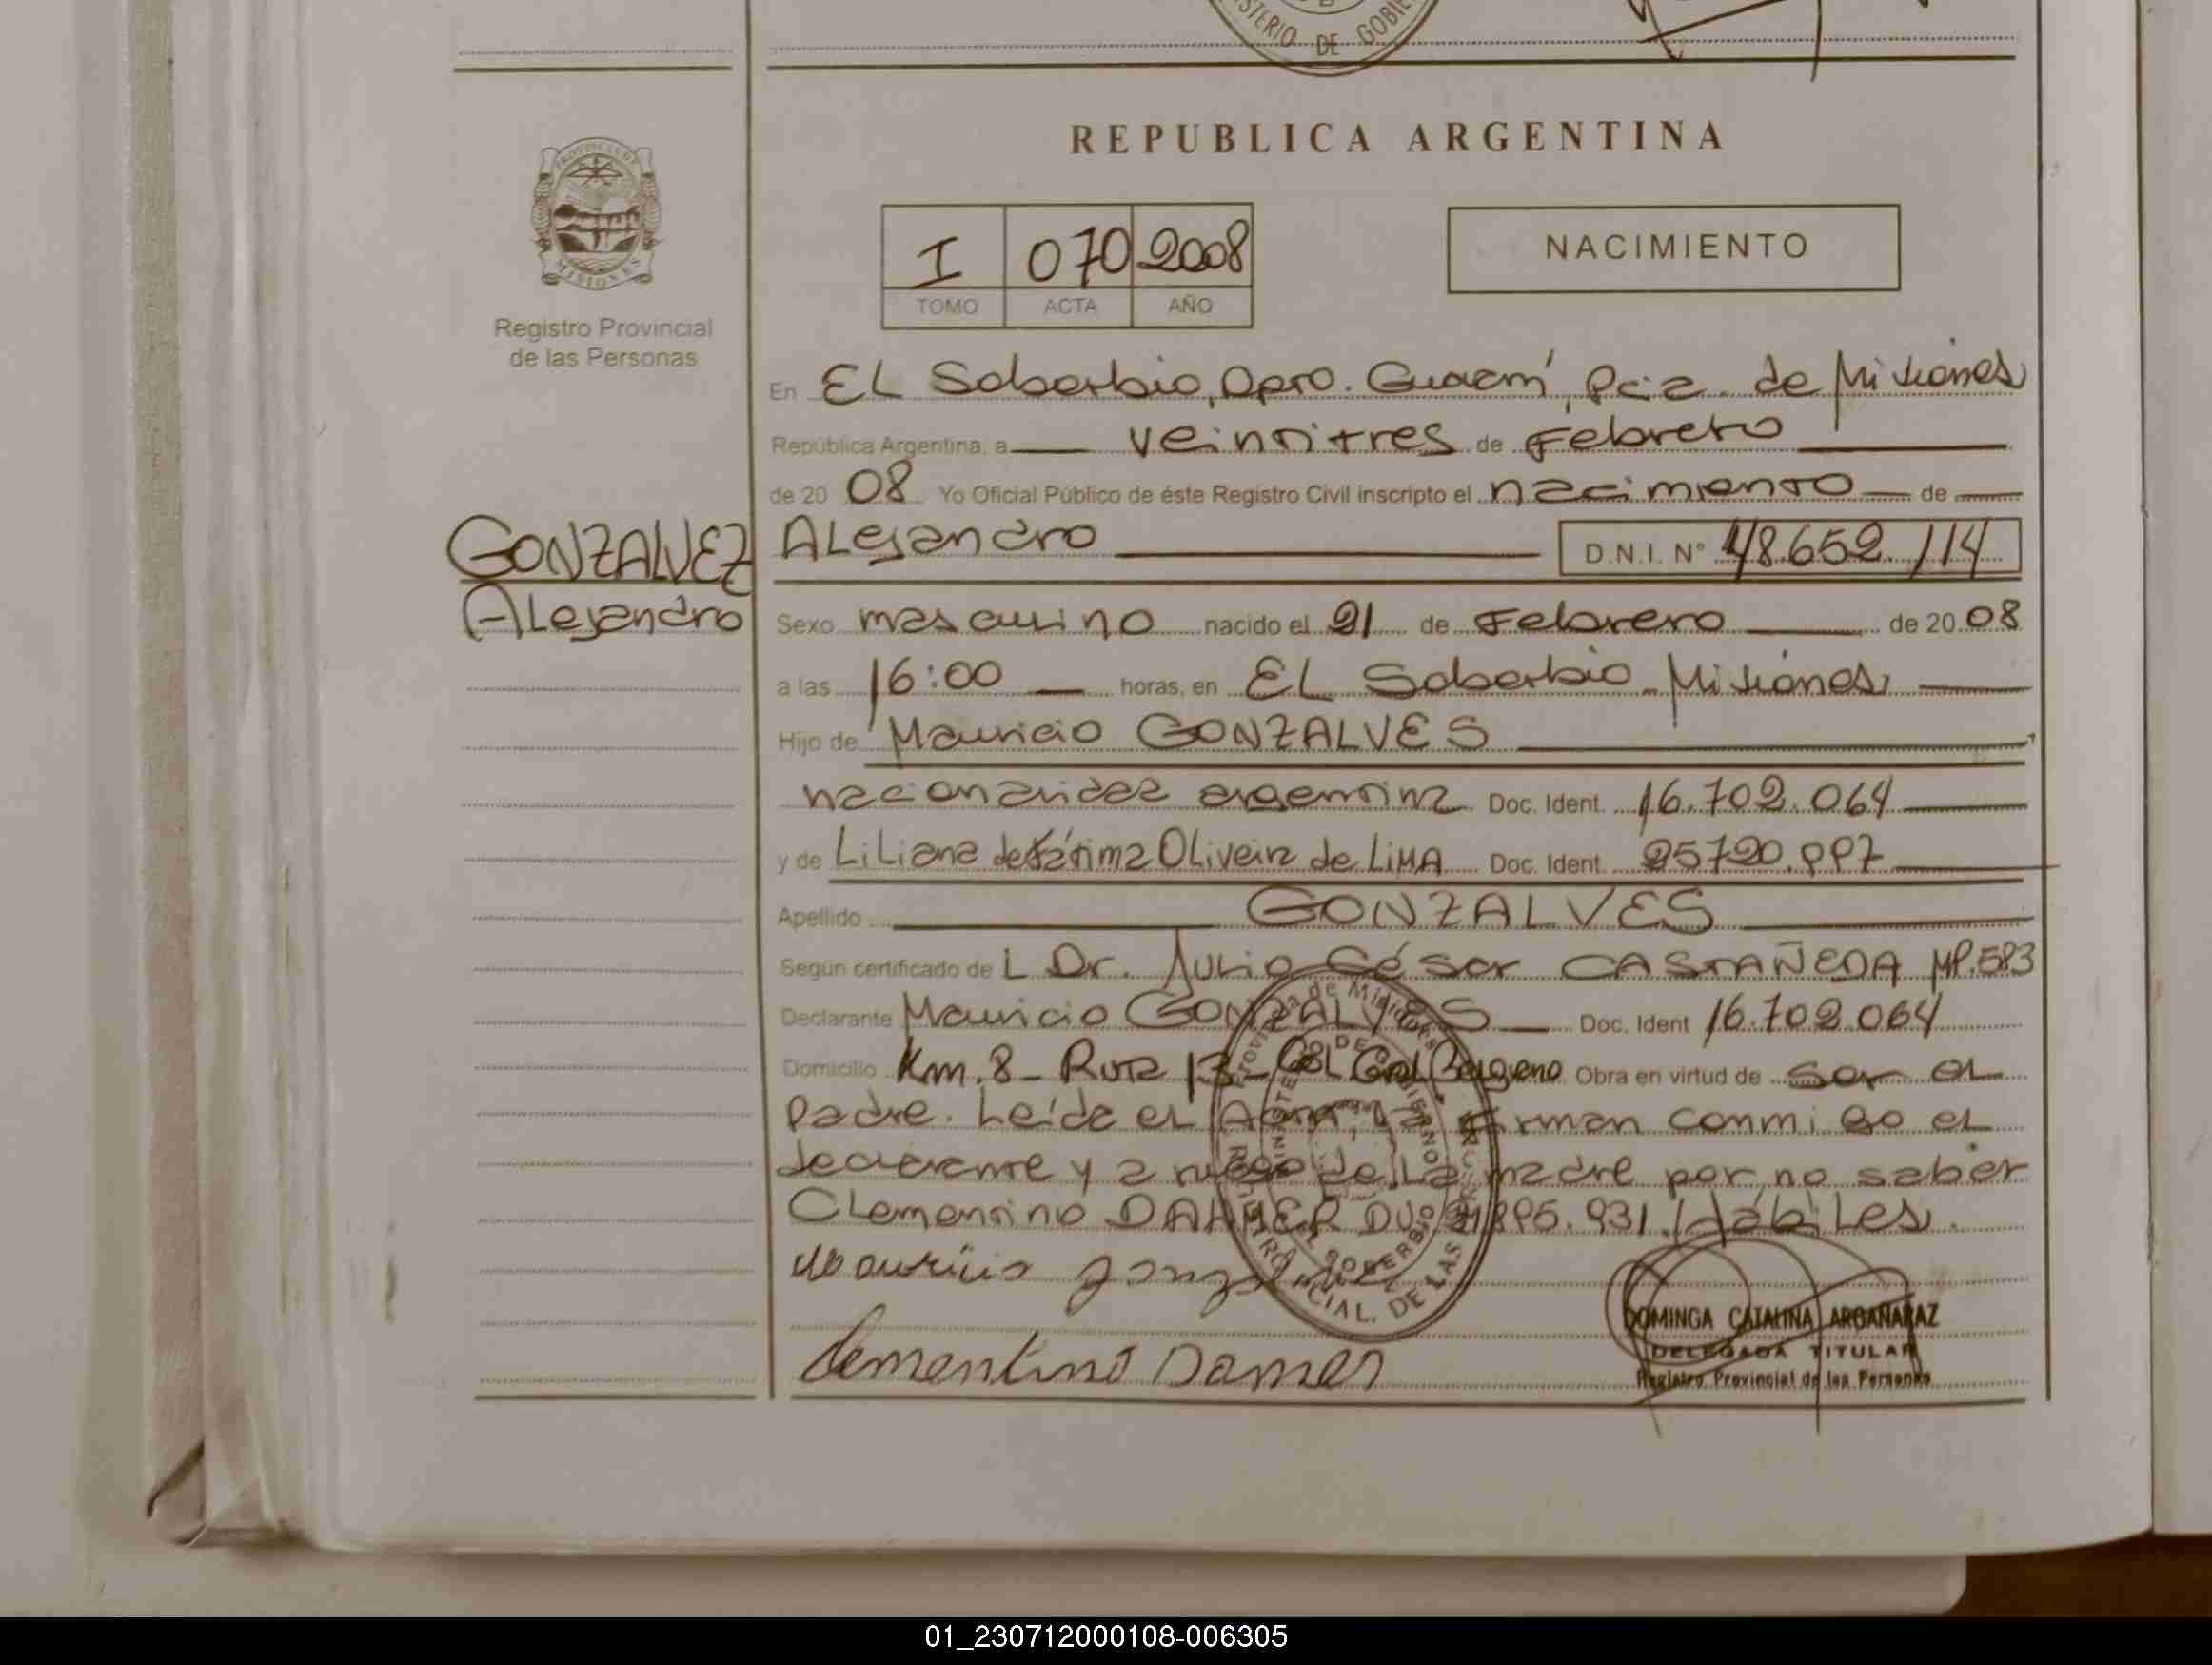 MINISTERIO DE GOBIE
REPUBLICA ARGENTINA
PROVINCIA DE
MISIONES
Registro Provincial
de las Personas
I 070 2008
TOMO ACTA AÑO
NACIMIENTO
En EL Soberbio, Dpto. Guaraní, Pcia. de Misiones
República Argentina, a veintitres de Febrero
de 20 08 Yo Oficial Público de éste Registro Civil inscripto el nacimiento de
GONZALVEZ
Alejandro
ALejandro D.N.I. N° 48.652.114
Sexo masculino nacido el 21 de Febrero de 20 08
a las 16:00 horas, en EL Soberbio Misiones
Hijo de Mauricio GONZALVES
nacionalidad argentina Doc. Ident. 16.702.064
y de LiLiana de Fátima OLiveira de LiMA Doc. Ident. 25720.997
Apellido GONZALVES
Según certificado de L Dr. Julio César CASTAÑEDA MP.583
Declarante Mauricio GONZALVES Doc. Ident 16.702.064
Domicilio Km.8 - Ruta 13 - CoL GraL Belgrano Obra en virtud de ser eL
padre. Leída eL Acta, La firman conmigo eL
declarante y a ruego de La madre por no saber
CLementino DAHMER DU 895.931. Hábiles.
Mauricio
Clementino Damer
DOMINGA CATALINA ARGAÑARAZ
DELEGADA TITULAR
Registro Provincial de las Personas
01_230712000108-006305